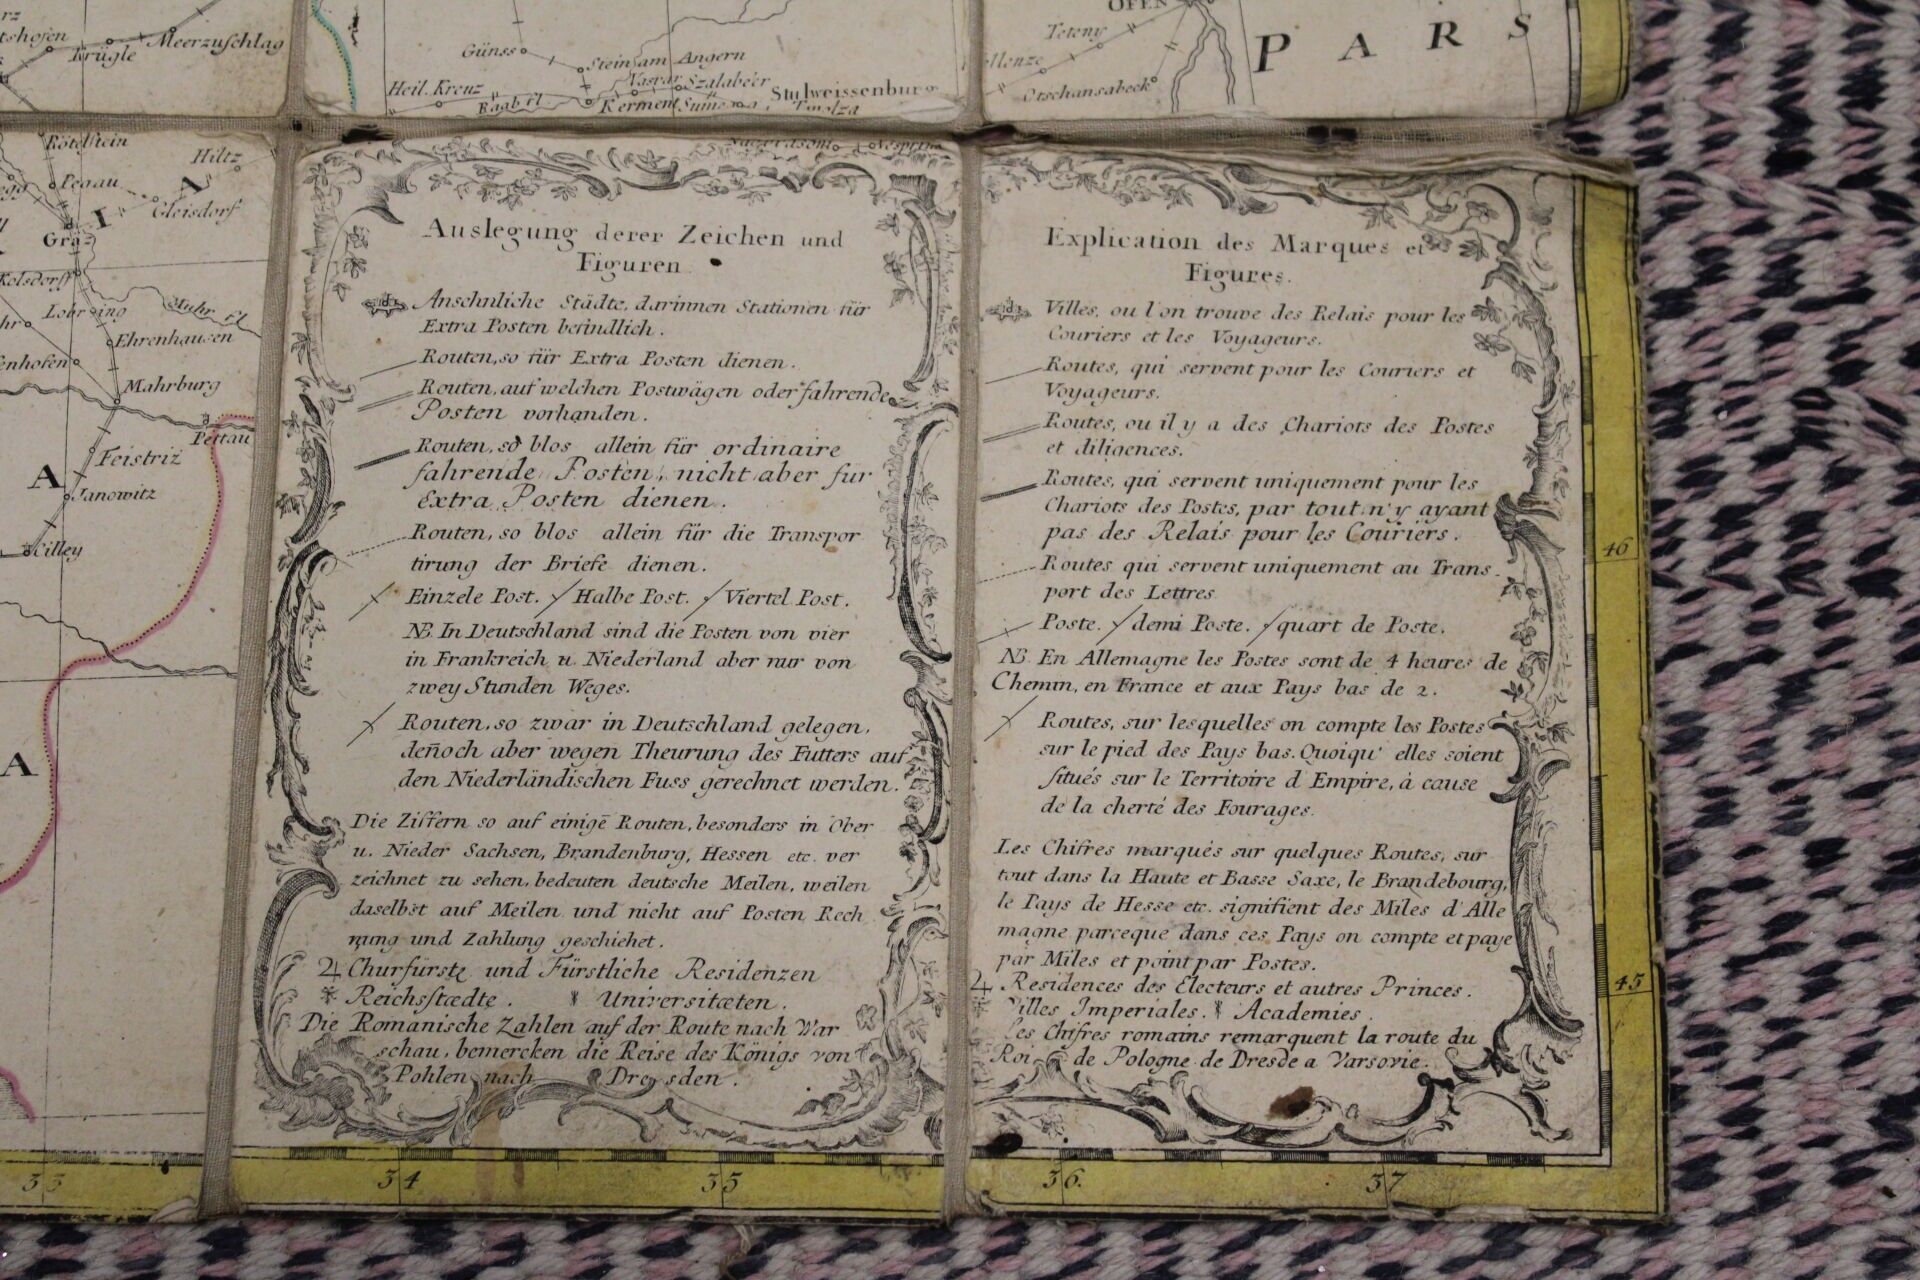 tshofen
Krügle
Meerzuschlag
Günss
Stein am Angern
Vasvar
Szalabeér
Heil. Kreuz
Raab fl.
Kerment
Stulweissenburg
OFEN
Teteny
Otschansabeck
PARS
Rötelstein
Hiltz
Pegau
Gleisdorf
I A
Gräz
Kolsdorff
Muhr fl.
Ehrenhausen
enhofen
Mahrburg
Pettau
Feistriz
A
Janowitz
Cilley
A
Auslegung derer Zeichen und
Figuren.
Ansehnliche Städte, darinnen Stationen für
Extra Posten befindlich.
Routen, so für Extra Posten dienen.
Routen, auf welchen Postwägen oder fahrende
Posten vorhanden.
Routen, so blos allein für ordinaire
fahrende Posten, nicht aber für
Extra Posten dienen.
Routen, so blos allein für die Transpor
tirung der Briefe dienen.
Einzele Post. Halbe Post. Viertel Post.
NB. In Deutschland sind die Posten von vier
in Frankreich u. Niederland aber nur von
zwey Stunden Weges.
Routen, so zwar in Deutschland gelegen,
deñoch aber wegen Theurung des Futters auf
den Niederländischen Fuss gerechnet werden.
Die Ziffern so auf einigē Routen, besonders in Ober
u. Nieder Sachsen, Brandenburg, Hessen etc. ver
zeichnet zu sehen, bedeuten deutsche Meilen, weilen
daselbst auf Meilen und nicht auf Posten Rech
nung und Zahlung geschiehet.
♃ Churfürstl. und Fürstliche Residenzen
Reichsstædte. Universitæten.
Die Romanische Zahlen auf der Route nach War
schau, bemercken die Reise des Königs von
Pohlen nach Dresden.
Explication des Marques et
Figures.
Villes, ou l'on trouve des Relais pour les
Couriers et les Voyageurs.
Routes, qui servent pour les Couriers et
Voyageurs.
Routes, ou il y a des Chariots des Postes
et diligences.
Routes, qui servent uniquement pour les
Chariots des Postes, par tout n'y ayant
pas des Relais pour les Couriers.
Routes qui servent uniquement au Trans
port des Lettres
Poste. demi Poste. quart de Poste.
NB. En Allemagne les Postes sont de 4 heures de
Chemin, en France et aux Pays bas de 2.
Routes, sur lesquelles on compte les Postes
sur le pied des Pays bas. Quoiqu' elles soient
situés sur le Territoire d'Empire, à cause
de la cherté des Fourages.
Les Chifres marqués sur quelques Routes, sur
tout dans la Haute et Basse Saxe, le Brandebourg,
le Pays de Hesse etc. signifient des Miles d'Alle
magne parceque dans ces Pays on compte et paye
par Miles et point par Postes.
♃ Residences des Electeurs et autres Princes.
Villes Imperiales. Academies.
Les Chifres romains remarquent la route du
Roi de Pologne de Dresde a Varsovie.
46
45
33
34
35
36.
37